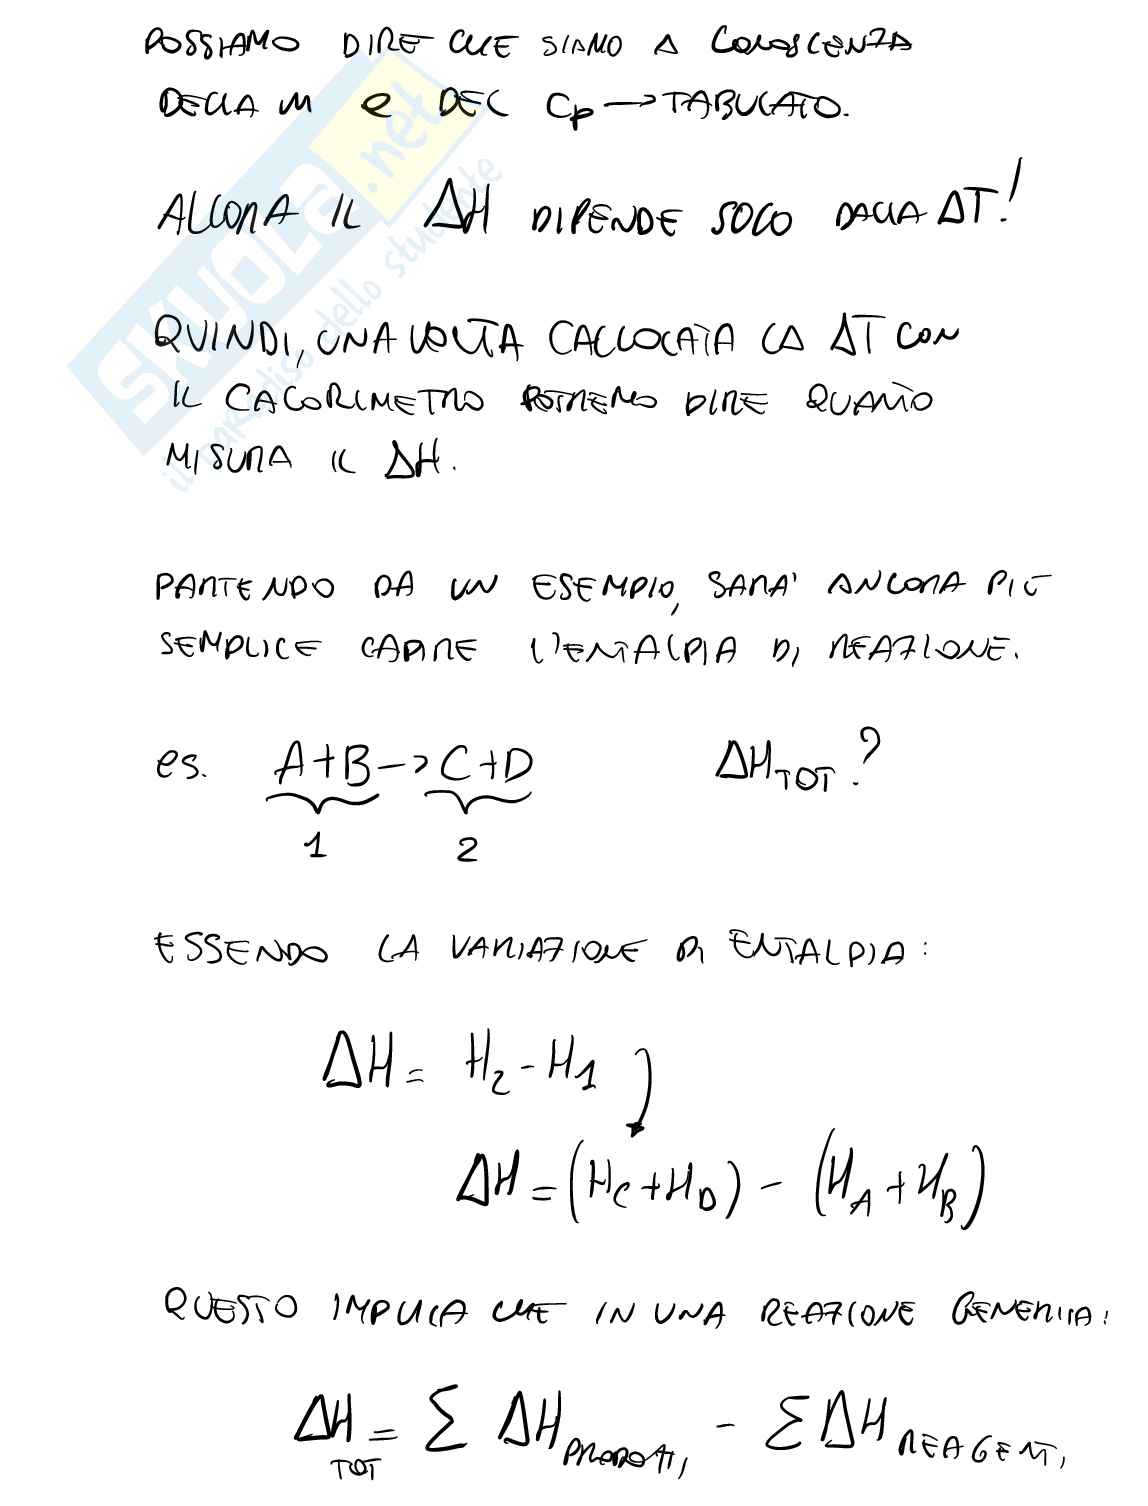 POSSIAMO DIRE CHE SIAMO A CONOSCENZA
DELLA M e DEL Cp → TABULATO.
ALLORA IL ΔH DIPENDE SOLO DALLA ΔT!
QUINDI, UNA VOLTA CALCOLATA LA ΔT CON
IL CALORIMETRO POTREMO DIRE QUANTO
MISURA IL ΔH.
PARTENDO DA UN ESEMPIO, SARA' ANCORA PIÙ
SEMPLICE CAPIRE L'ENTALPIA DI REAZIONE.
es. A+B → C+D ΔH TOT?
1 2
ESSENDO LA VARIAZIONE DI ENTALPIA:
ΔH = H2 - H1
ΔH = (HC + HD) - (HA + HB)
QUESTO IMPLICA CHE IN UNA REAZIONE GENERICA:
ΔH TOT = Σ ΔH PRODOTTI - Σ ΔH REAGENTI
SKUOLA.net
il paradiso dello studente